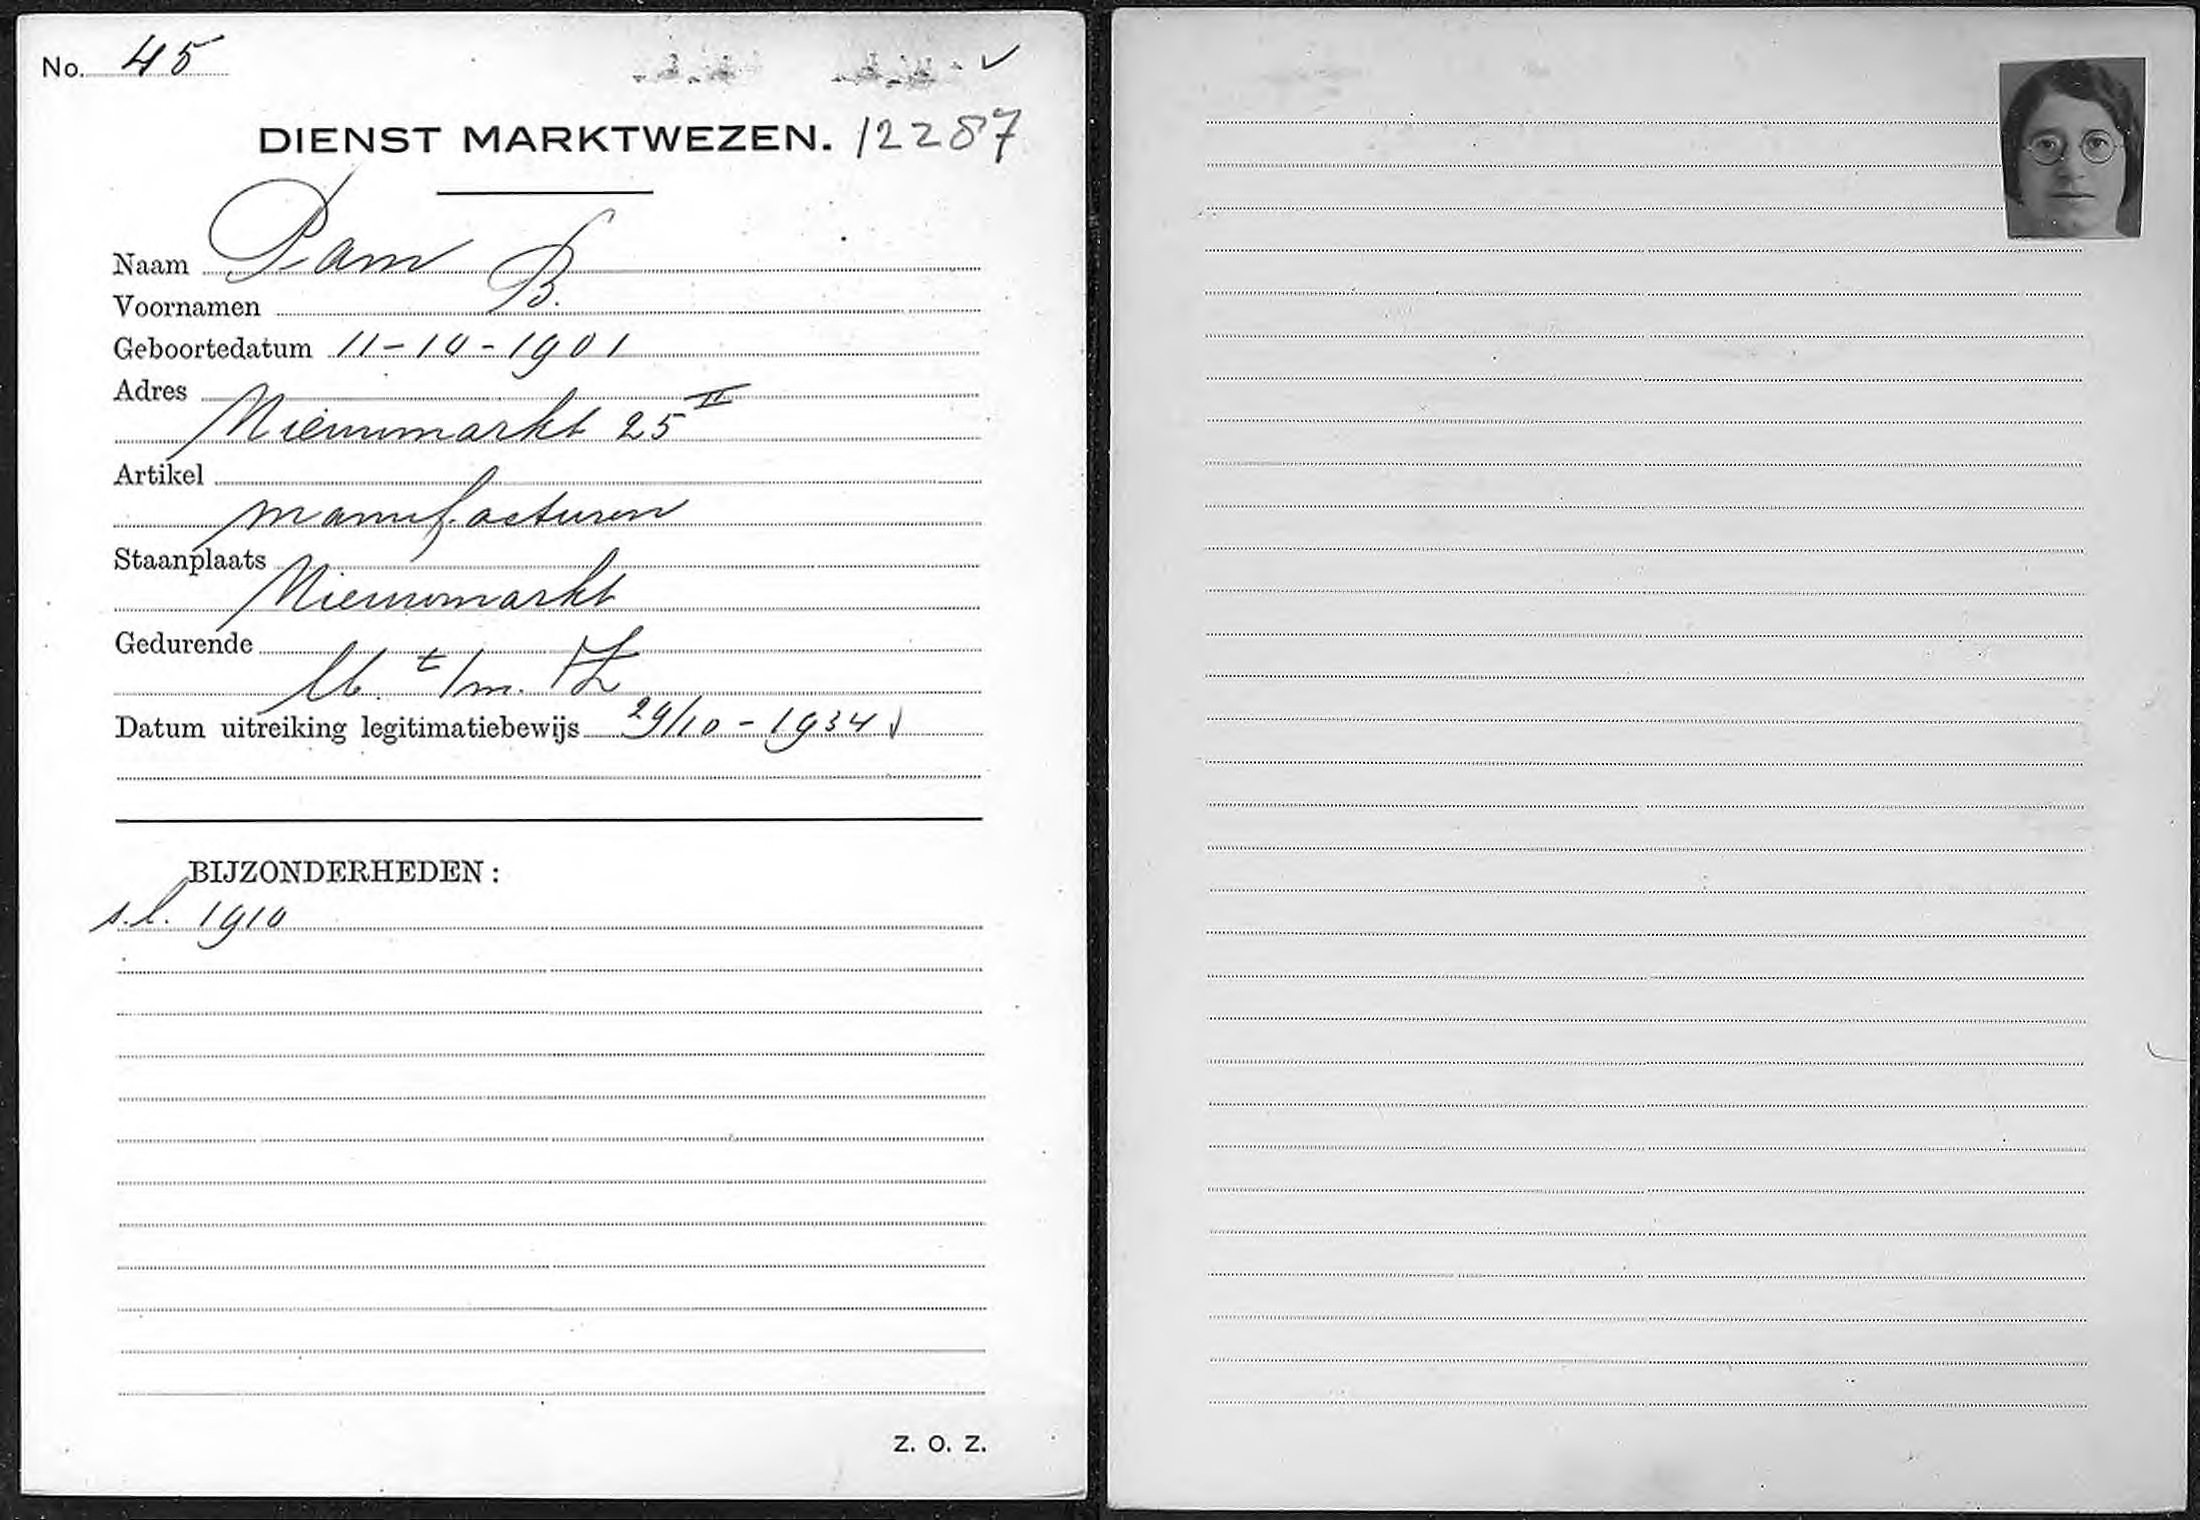 No. 45
DIENST MARKTWEZEN. 12287
Naam Pam B.
Voornamen
Geboortedatum 11-10-1901
Adres
Nieuwmarkt 25 II
Artikel
manufacturen
Staanplaats
Nieuwmarkt
Gedurende
M. t/m. Z
Datum uitreiking legitimatiebewijs 29/10-1934
BIJZONDERHEDEN:
s.l. 1910
Z. O. Z.